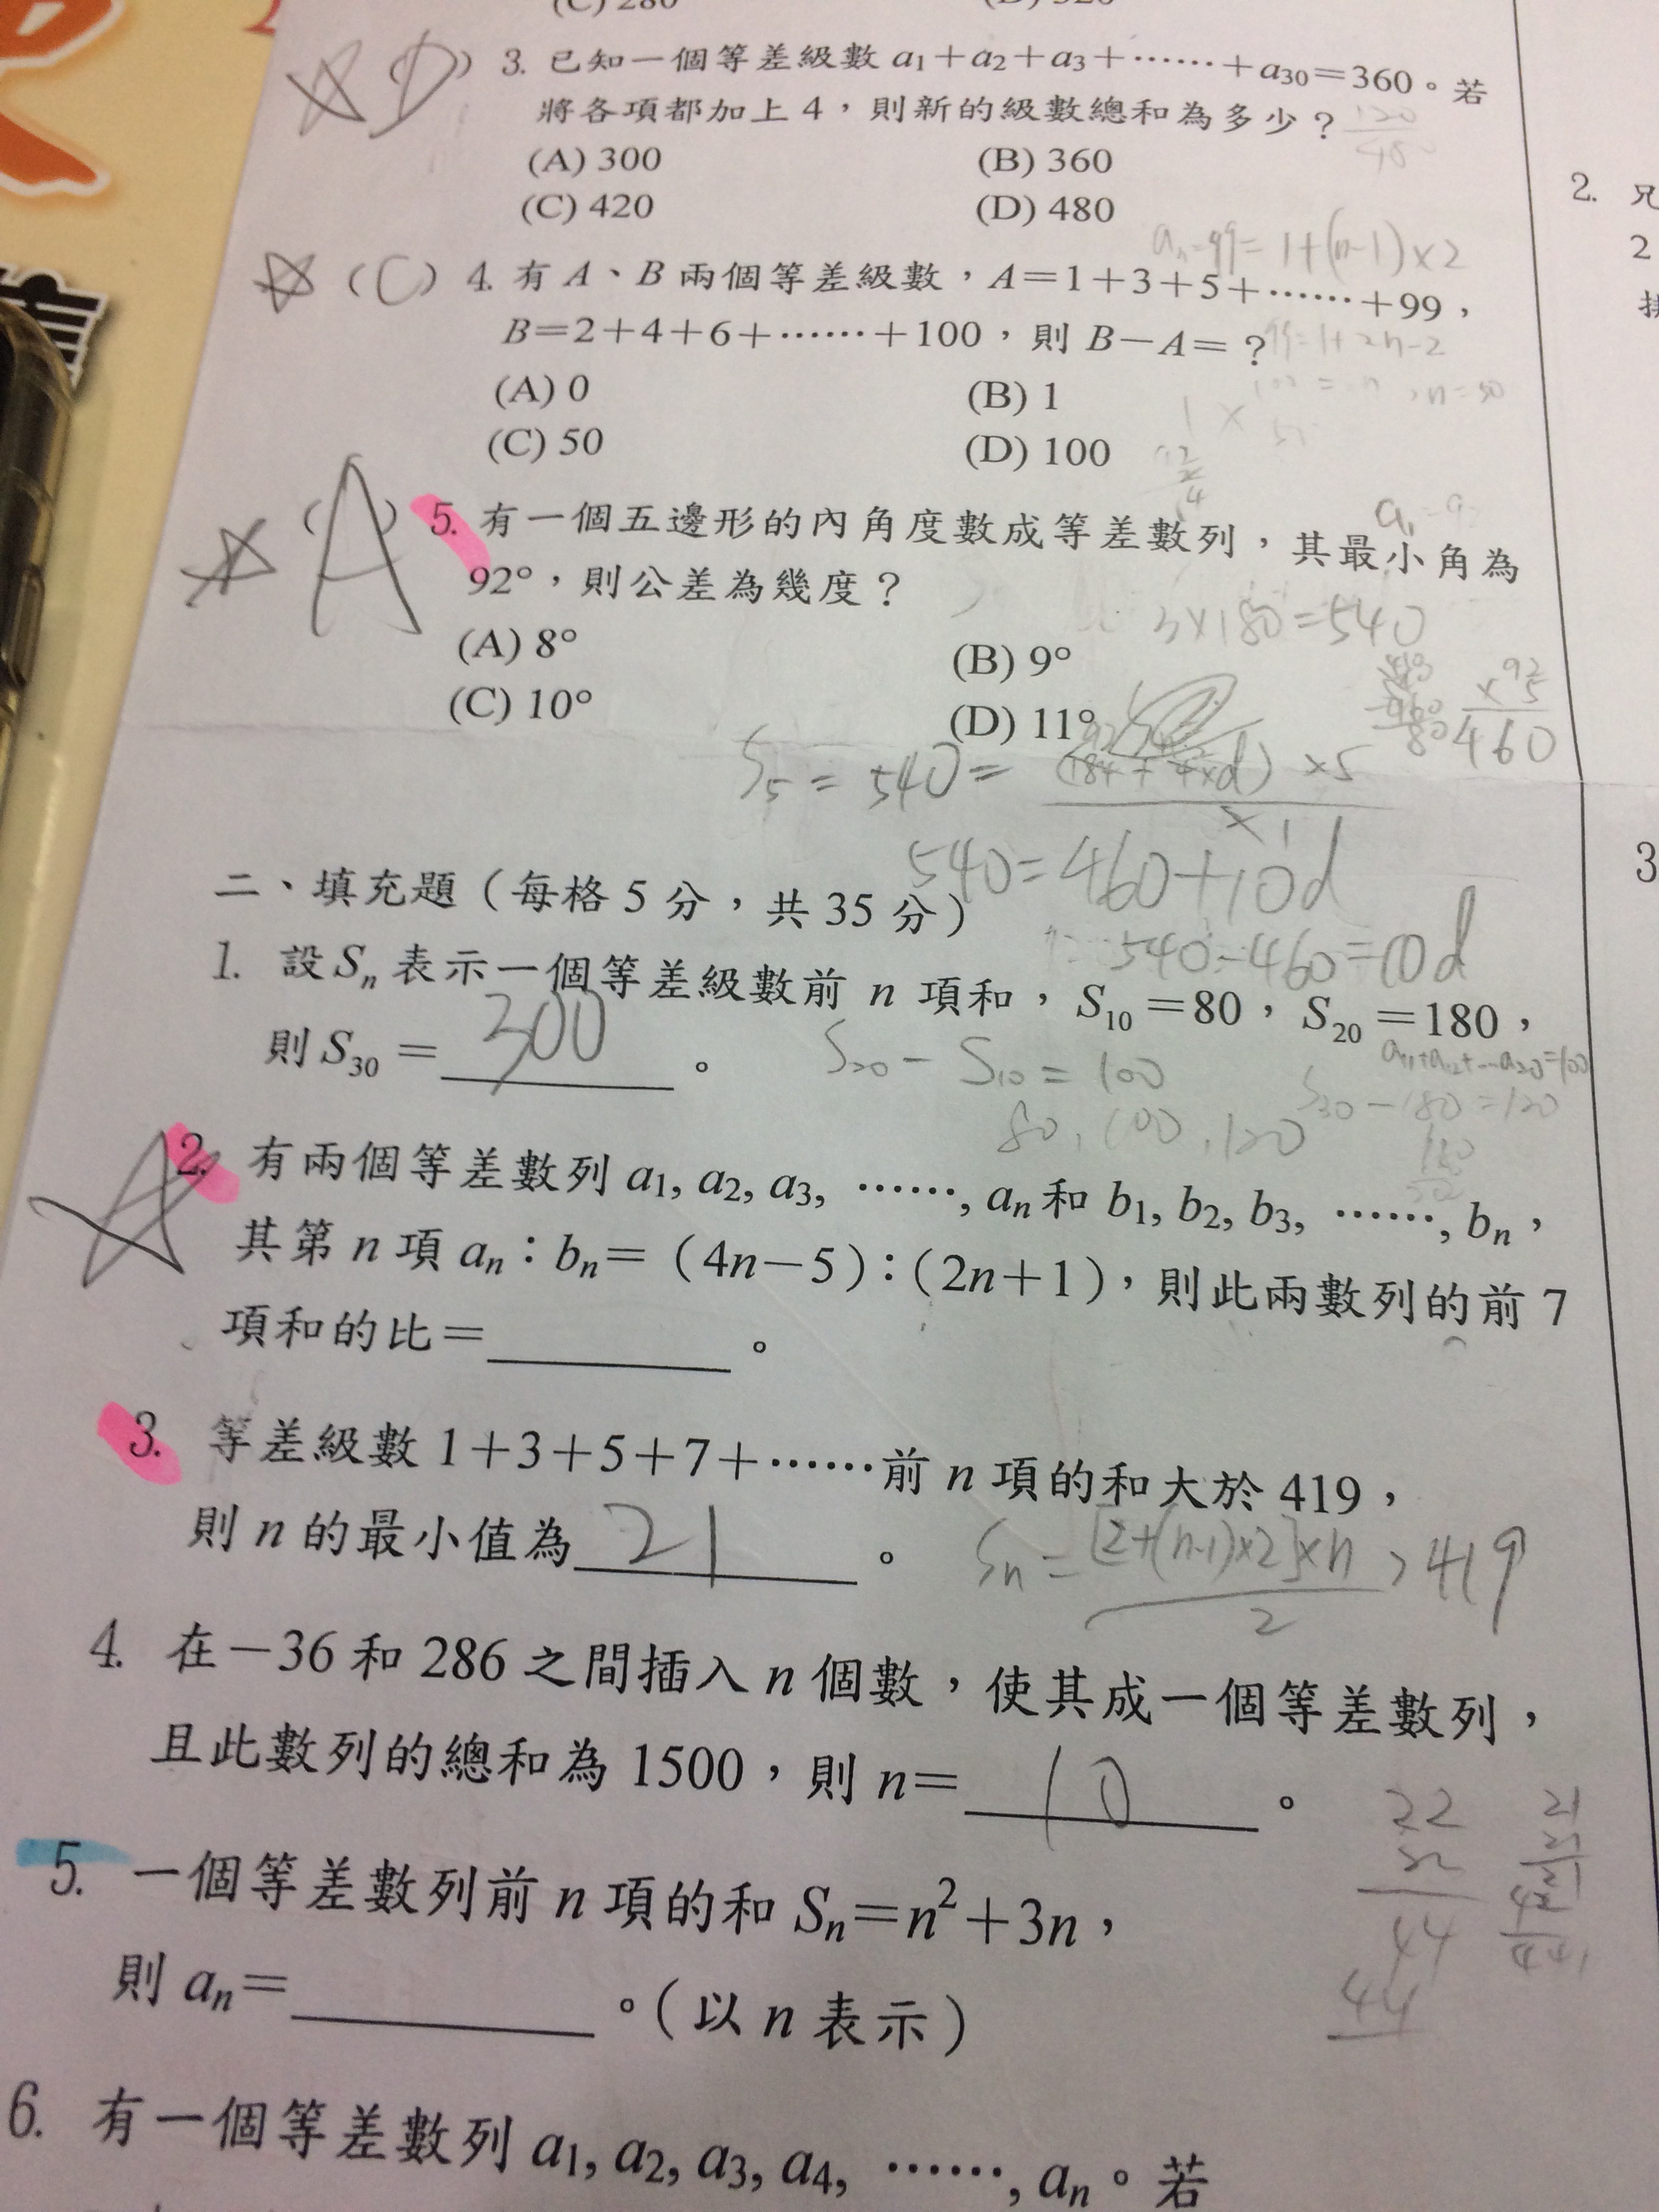 (C) 280
(D) 320
(D) 3. 已知一個等差級數 a₁+a₂+a₃+……+a₃₀=360。若
將各項都加上 4,則新的級數總和為多少?
120
(A) 300 (B) 360
(C) 420 (D) 480
aₙ=99=1+(n-1)×2
(C) 4. 有 A、B 兩個等差級數,A=1+3+5+……+99,
B=2+4+6+……+100,則 B-A=?
99=1+2n-2
, n=50
(A) 0 (B) 1
(C) 50 (D) 100
(A) 5. 有一個五邊形的內角度數成等差數列,其最小角為
92°,則公差為幾度?
3×180=540
(A) 8° (B) 9°
(C) 10° (D) 11°
92
×5
460
S₅=540=(184+4×d)×5
540=460+10d
540-460=10d
二、填充題(每格 5 分,共 35 分)
1. 設 Sₙ 表示一個等差級數前 n 項和,S₁₀=80,S₂₀=180,
則 S₃₀=300。
S₂₀-S₁₀=100
a₁₁+a₁₂+…a₂₀=100
80,100,120
S₃₀-180=120
2. 有兩個等差數列 a₁, a₂, a₃, ……, aₙ 和 b₁, b₂, b₃, ……, bₙ,
其第 n 項 aₙ:bₙ=(4n-5):(2n+1),則此兩數列的前 7
項和的比=______。
3. 等差級數 1+3+5+7+……前 n 項的和大於 419,
則 n 的最小值為 21。
Sₙ=[2+(n-1)×2]×n/2>419
4. 在-36 和 286 之間插入 n 個數,使其成一個等差數列,
且此數列的總和為 1500,則 n=10。
22
44
44
21
441
5. 一個等差數列前 n 項的和 Sₙ=n²+3n,
則 aₙ=______。(以 n 表示)
6. 有一個等差數列 a₁, a₂, a₃, a₄, ……, aₙ。若
2. 兄
2
3